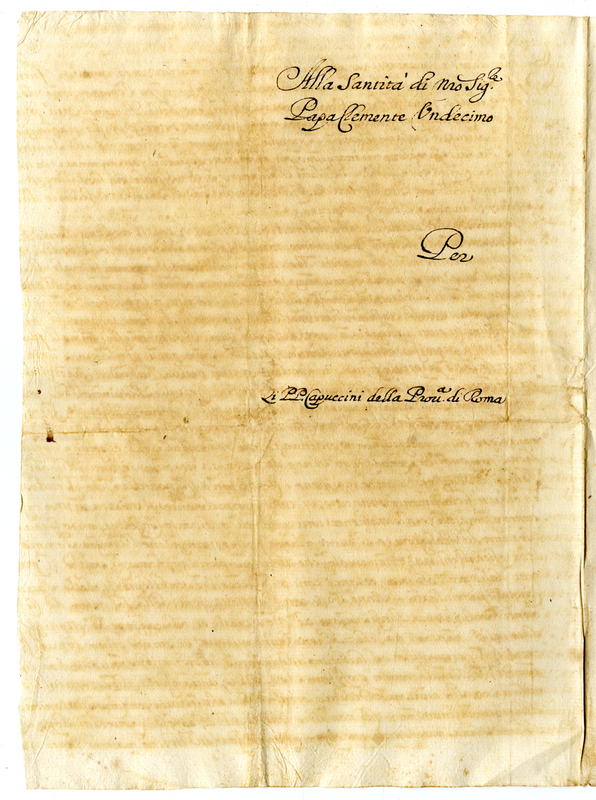 Alla Santità di Nro Sig.la
Papa Clemente Undecimo
Per
Li PP. Capuccini della Prou.a di Roma